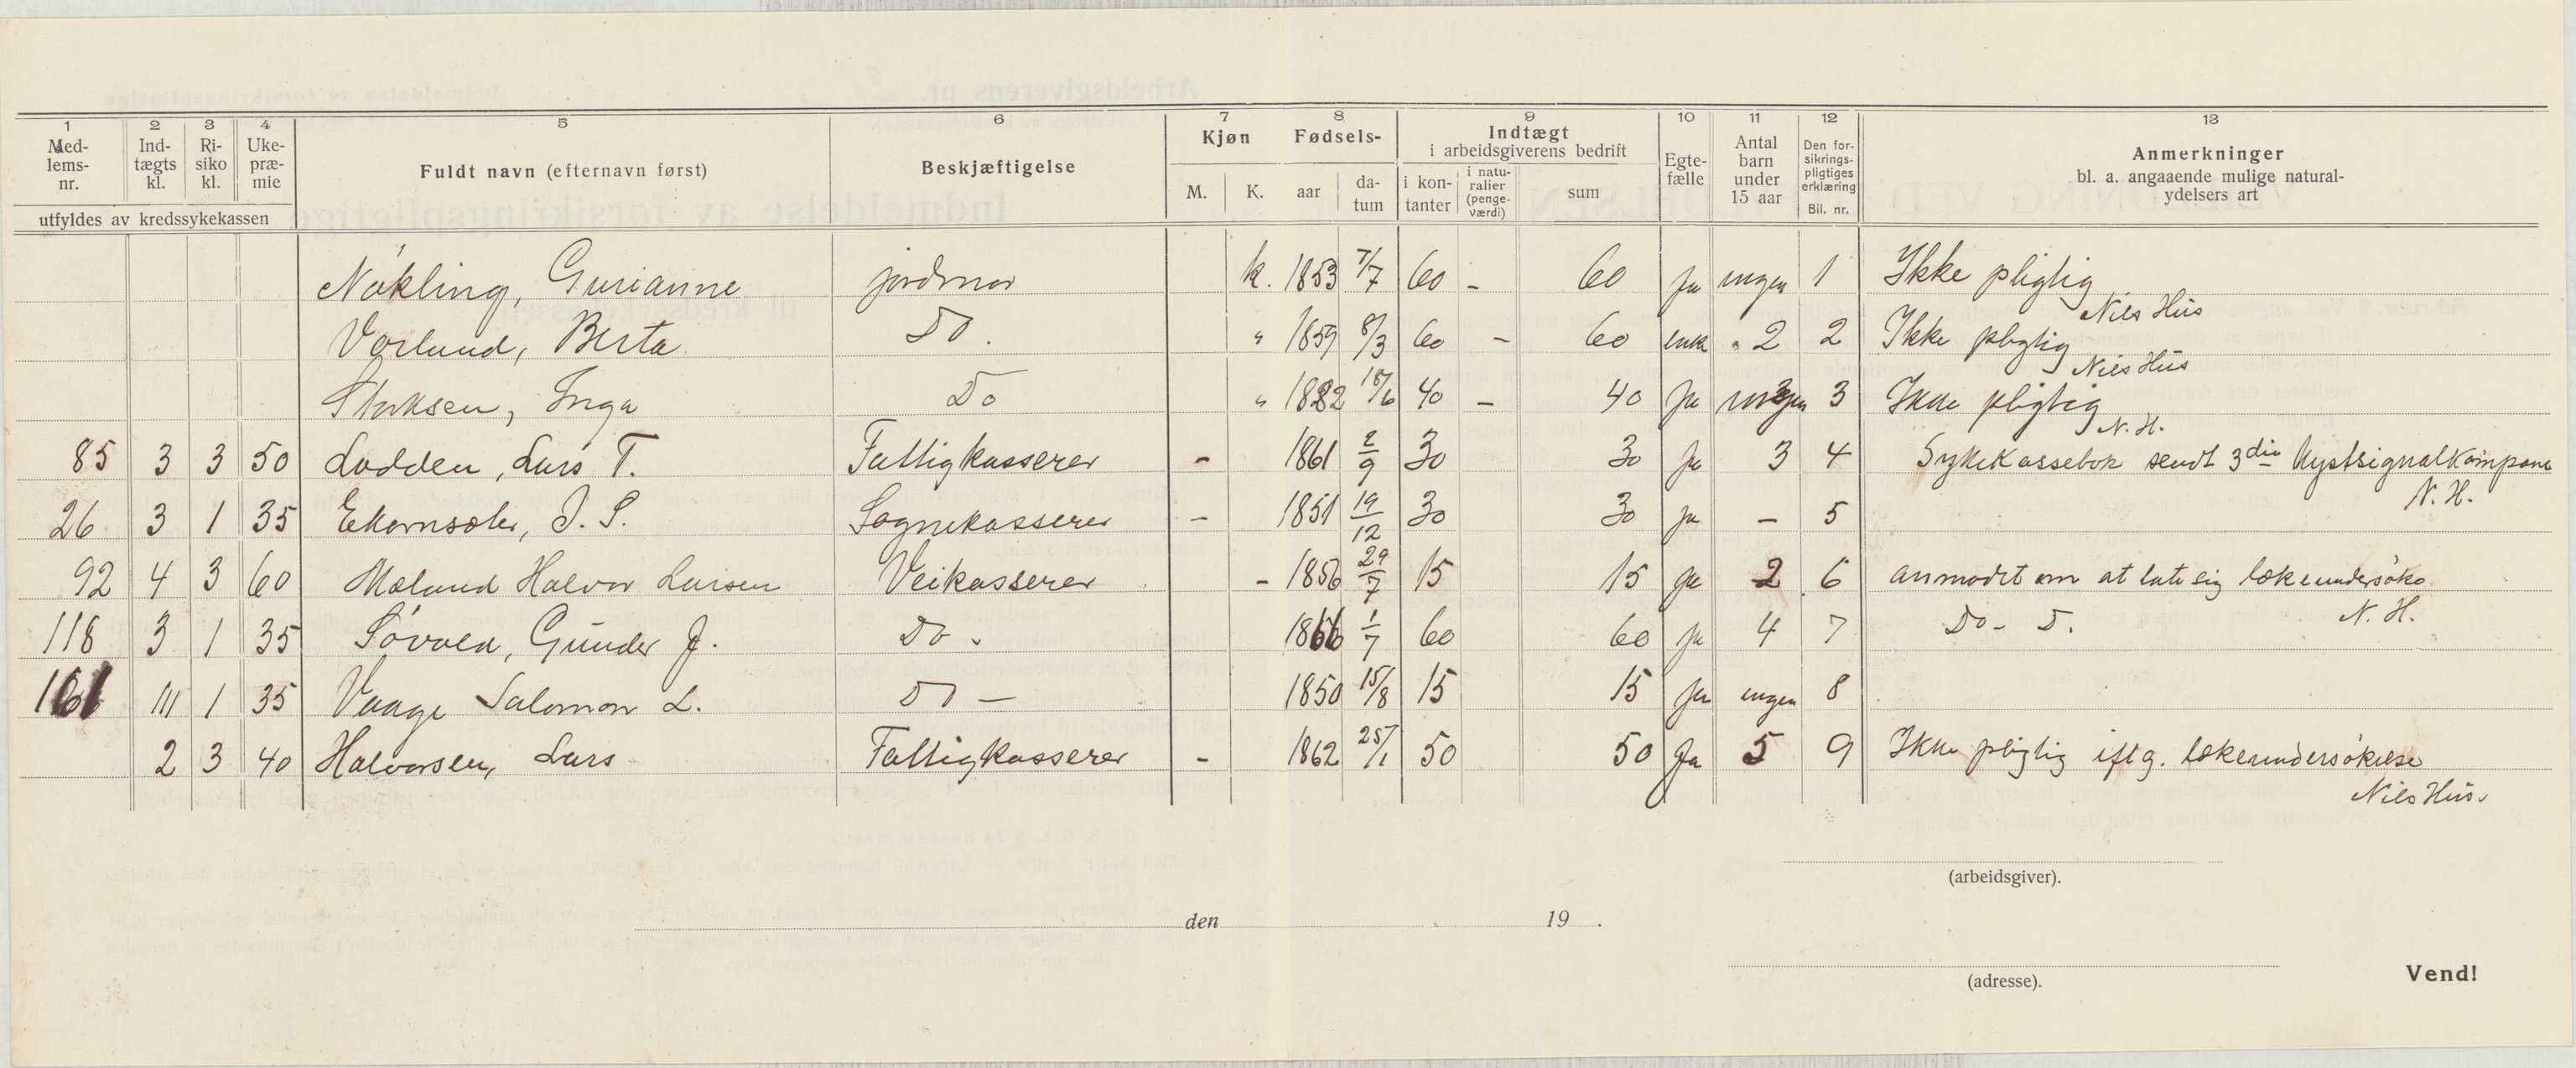 1 2 3 4 5 6 7 8 9 10 11 12 13
Med-lems-nr. Ind-tægts kl. Ri-siko kl. Uke-præ-mie Fuldt navn (efternavn først) Beskjæftigelse Kjøn Fødsels- Indtægt i arbeidsgiverens bedrift Egte-fælle Antal barn under 15 aar Den for-sikrings-pligtiges erklæring Bil. nr. Anmerkninger bl. a. angaaende mulige natural-ydelsers art
utfyldes av kredssykekassen M. K. aar da-tum i kon-tanter i natu-ralier (penge-værdi) sum
Nökling, Gurianne jordmor k. 1853 7/7 60 - 60 ja ingen 1 Ikke pligtig
Nils Hus
Vorland, Berta Do. " 1859 8/3 60 - 60 enk 2 2 Ikke pligtig
Nils Hus
Inga Do " 1882 18/6 40 - 40 ja 3 Ikke pligtig
N. H.
85 3 3 50 Lodden, Lars T. Fattigkasserer - 1861 2/9 30 30 ja 3 4 Sykekassebok sendt 3die Kystsignalkompani
N. H.
26 3 1 35 Ekornsæter, J. S. Sognekasserer - 1851 19/12 30 30 ja - 5
92 4 3 60 Mæland Halvor Larsen Veikasserer - 1856 29/7 15 15 ja 2 6 anmodet om at late sig lækeundersöke
N. H.
118 3 1 35 Sövold, Gunder J. Do. 1866 1/7 60 60 ja 4 7 Do - D.
161 III 1 35 Vaage Salomon L. Do - 1850 15/8 15 15 ja ingen 8
2 3 40 Halvorsen, Lars Fattigkasserer - 1862 25/1 50 50 Ja 5 9 Ikke pligtig iflg. lækeundersökelse
Nils Hus.
(arbeidsgiver).
den 19 .
(adresse).
Vend!